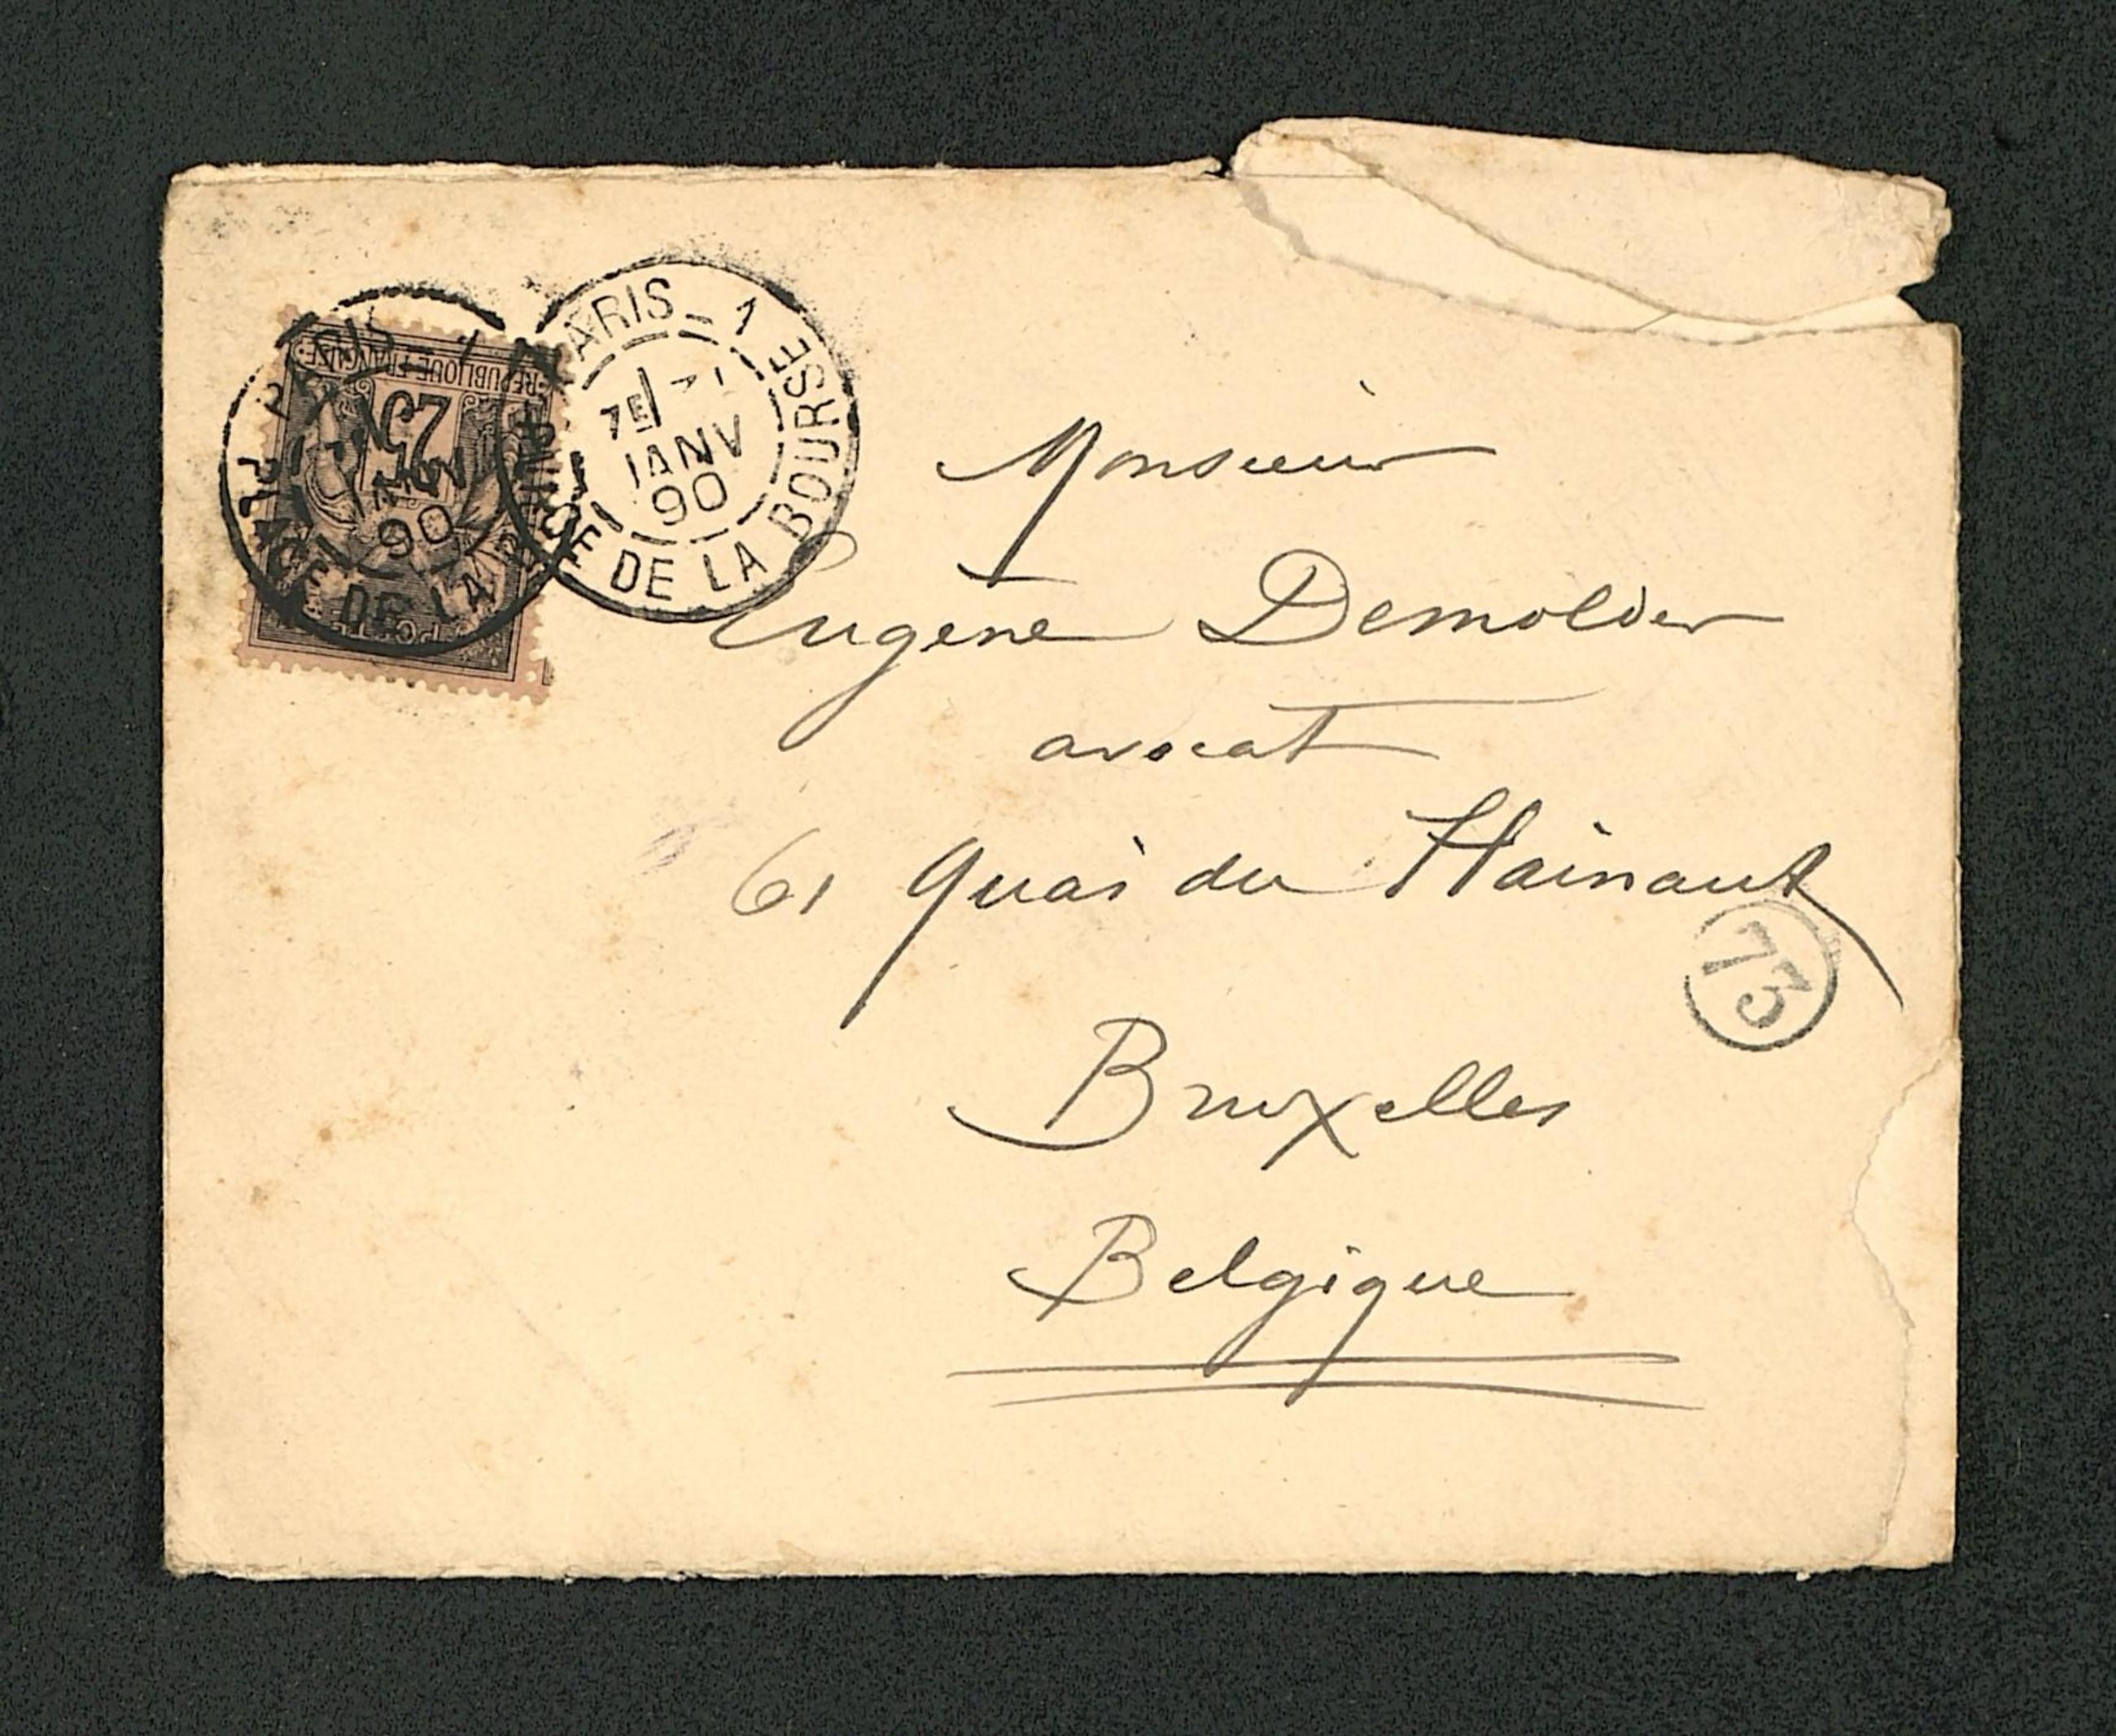 PARIS_1
7E
JANV
90
PLACE DE LA BOURSE
PARIS 1
90
PLACE DE LA
REPUBLIQUE FRANÇAISE
25
Monsieur
Eugène Demolder
avocat
61 quai du Hainaut
73
Bruxelles
Belgique